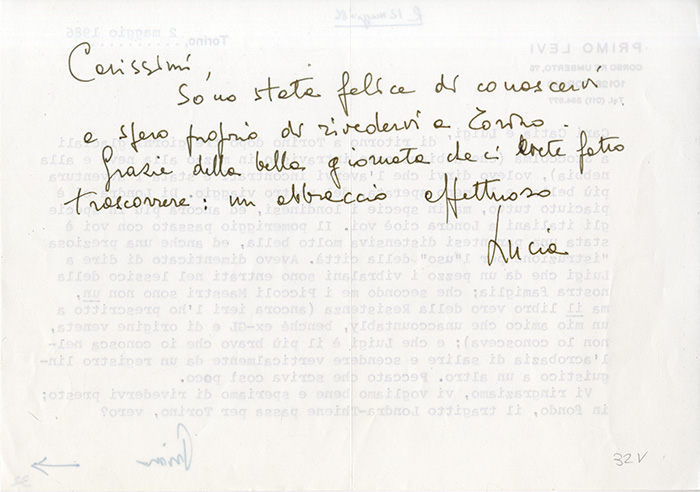 Carissimi,
Sono stata felice di conoscervi
e spero proprio di rivedervi a Torino.
Grazie della bella giornata che ci avete fatto
trascorrere: un abbraccio affettuoso
Lucia
32V
PRIMO LEVI
CORSO RE UMBERTO, 75
Torino, 2 maggio 1986
piaciuto tutto, ma in specie i londinesi, ed ancora più in specie
gli italiani a Londra cioè voi. Il pomeriggio passato con voi è
stata una parentesi distensiva molto bella, ed anche una preziosa
"istruzione per l'uso" della città. Devo dimenticato di dire a
Luigi che da un pezzo i vibralani sono entrati nel lessico della
nostra famiglia; che secondo me i Piccoli Maestri sono non un,
ma il libro vero della Resistenza (ancora ieri l'ho prescritto a
un mio amico che unaccountably, benché ex-GL e di origine veneta,
non lo conosceva); e che Luigi è il più bravo che io conosca nel-
l'acrobazia di salire e scendere verticalmente da un registro lin-
guistico a un altro. Peccato che scriva così poco.
Vi ringraziamo, vi vogliamo bene e speriamo di rivedervi presto;
in fondo, il tragitto Londra-Thiene passa per Torino, vero?